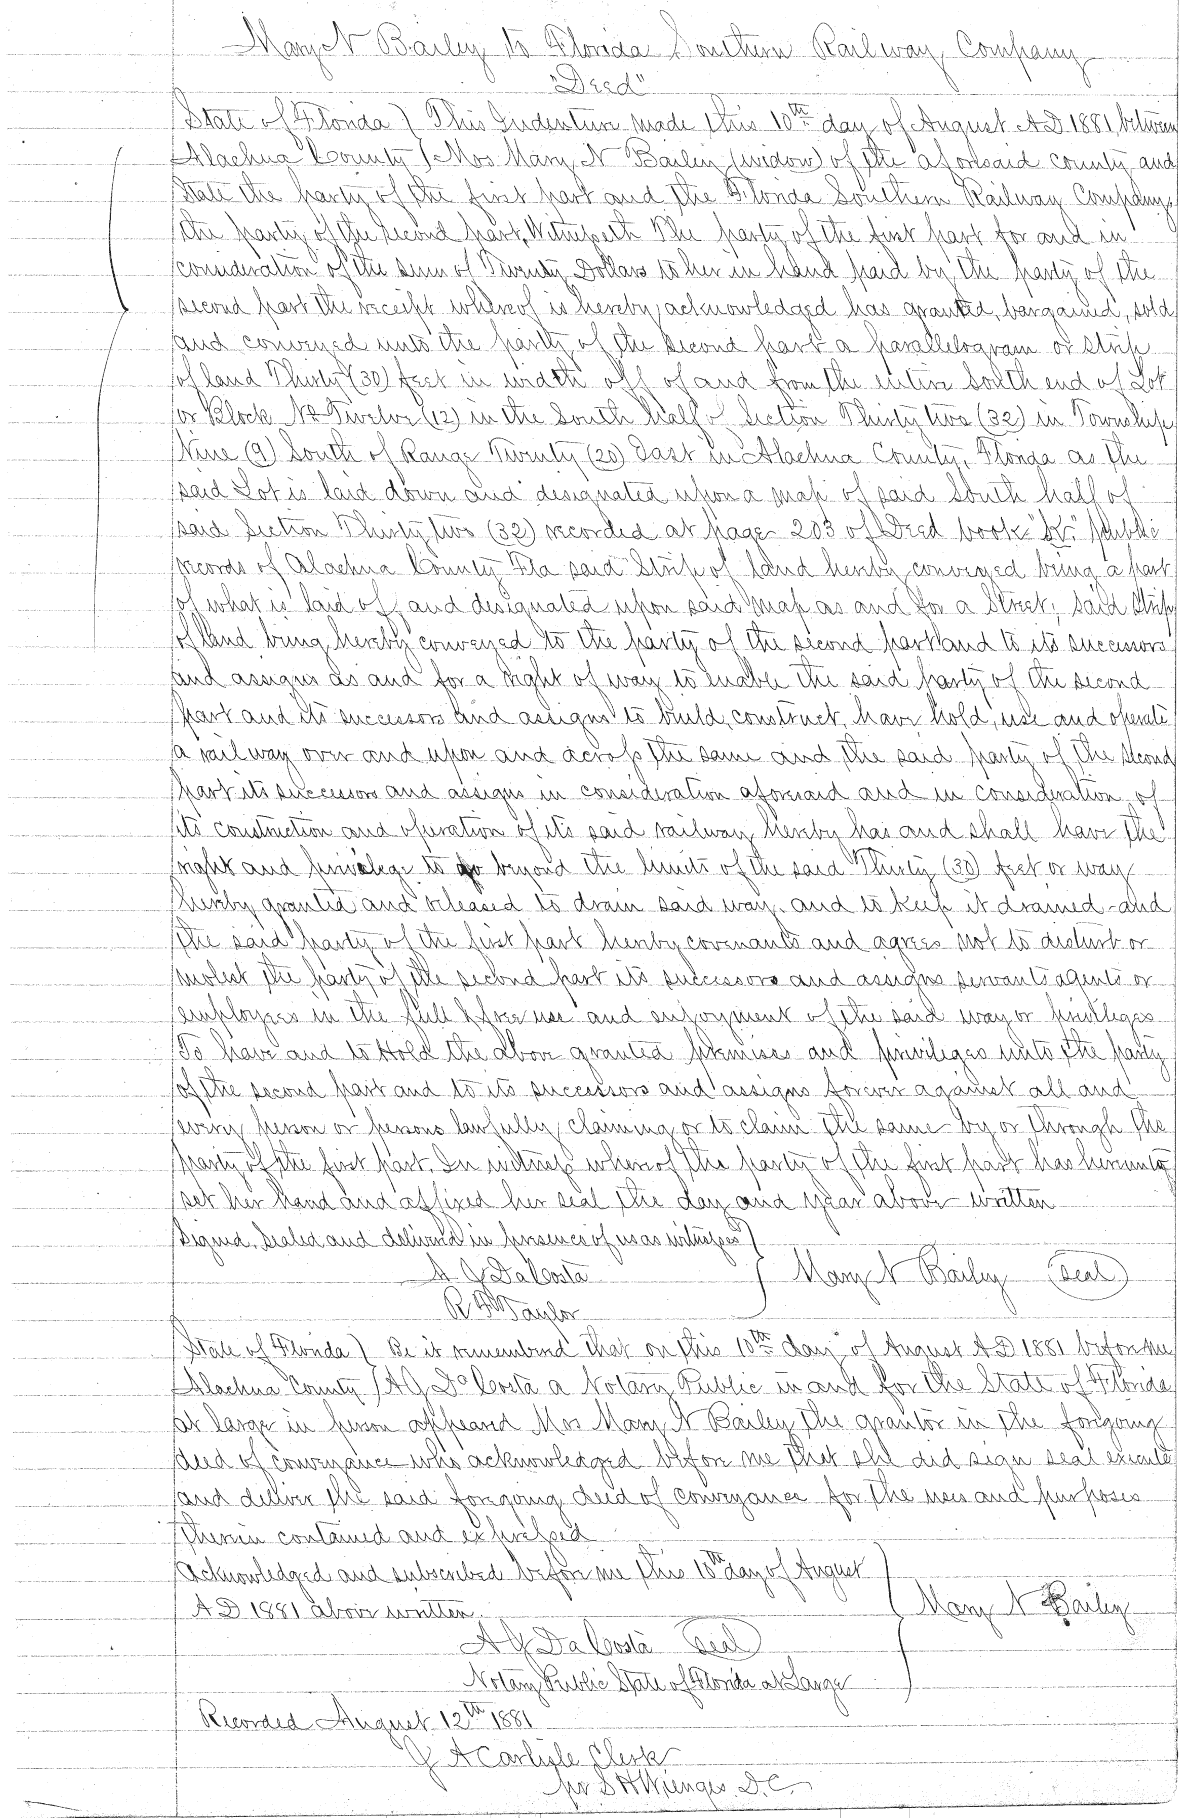 Mary N Bailey to Florida Southern Railway Company
"Deed"
State of Florida } This Indenture made this 10th day of August A D 1881, between
Alachua County } Mrs Mary N Bailey (widow) of the aforesaid county and
State the party of the first part and the Florida Southern Railway Company,
the party of the second part, Witnesseth The party of the first part for and in
consideration of the sum of Twenty Dollars to her in hand paid by the party of the
second part the receipt whereof is hereby acknowledged has granted, bargained, sold
and conveyed unto the party of the second part a parallelogram or strip
of land Thirty (30) feet in width off of and from the entire South end of Lot
or Block No Twelve (12) in the South half of Section Thirty two (32) in Township
Nine (9) South of Range Twenty (20) East in Alachua County, Florida as the
said Lot is laid down and designated upon a map of said South half of
said Section Thirty two (32) recorded at page 203 of Deed book "K" public
records of Alachua County Fla said Strip of land hereby conveyed being a part
of what is laid off and designated upon said map as and for a Street; said strip
of land being hereby conveyed to the party of the second part and to its successors
and assigns as and for a right of way to enable the said party of the second
part and its successors and assigns to build, construct, have hold, use and operate
a railway over and upon and across the same and the said party of the second
part its successors and assigns in consideration aforesaid and in consideration of
its construction and operation of its said railway hereby has and shall have the
right and privilege to go beyond the limits of the said Thirty (30) feet or way
hereby granted and released to drain said way and to keep it drained and
the said party of the first part hereby covenants and agrees not to disturb or
molest the party of the second part its successors and assigns servants agents or
employees in the full & free use and enjoyment of the said way or privileges
To have and to Hold the above granted premises and privileges unto the party
of the second part and to its successors and assigns forever against all and
every person or persons lawfully claiming or to claim the same by or through the
party of the first part. In witness whereof the party of the first part has hereunto
set her hand and affixed her seal the day and year above written
Signed, Sealed and delivered in presence of us as witnesses }
A J DaCosta } Mary N Bailey (seal)
R Taylor
State of Florida } Be it remembered that on this 10th day of August A D 1881 before me
Alachua County } A J DaCosta a Notary Public in and for the State of Florida
at large in person appeared Mrs Mary N Bailey the grantor in the foregoing
deed of conveyance who acknowledged before me that she did sign seal execute
and deliver the said foregoing deed of conveyance for the uses and purposes
therein contained and expressed
Acknowledged and subscribed before me this 10th day of August
A D 1881 above written. } Mary N Bailey
A J DaCosta (seal)
Notary Public State of Florida at Large
Recorded August 12th 1881
J A Carlisle Clerk
pr S H Wienges D.C.